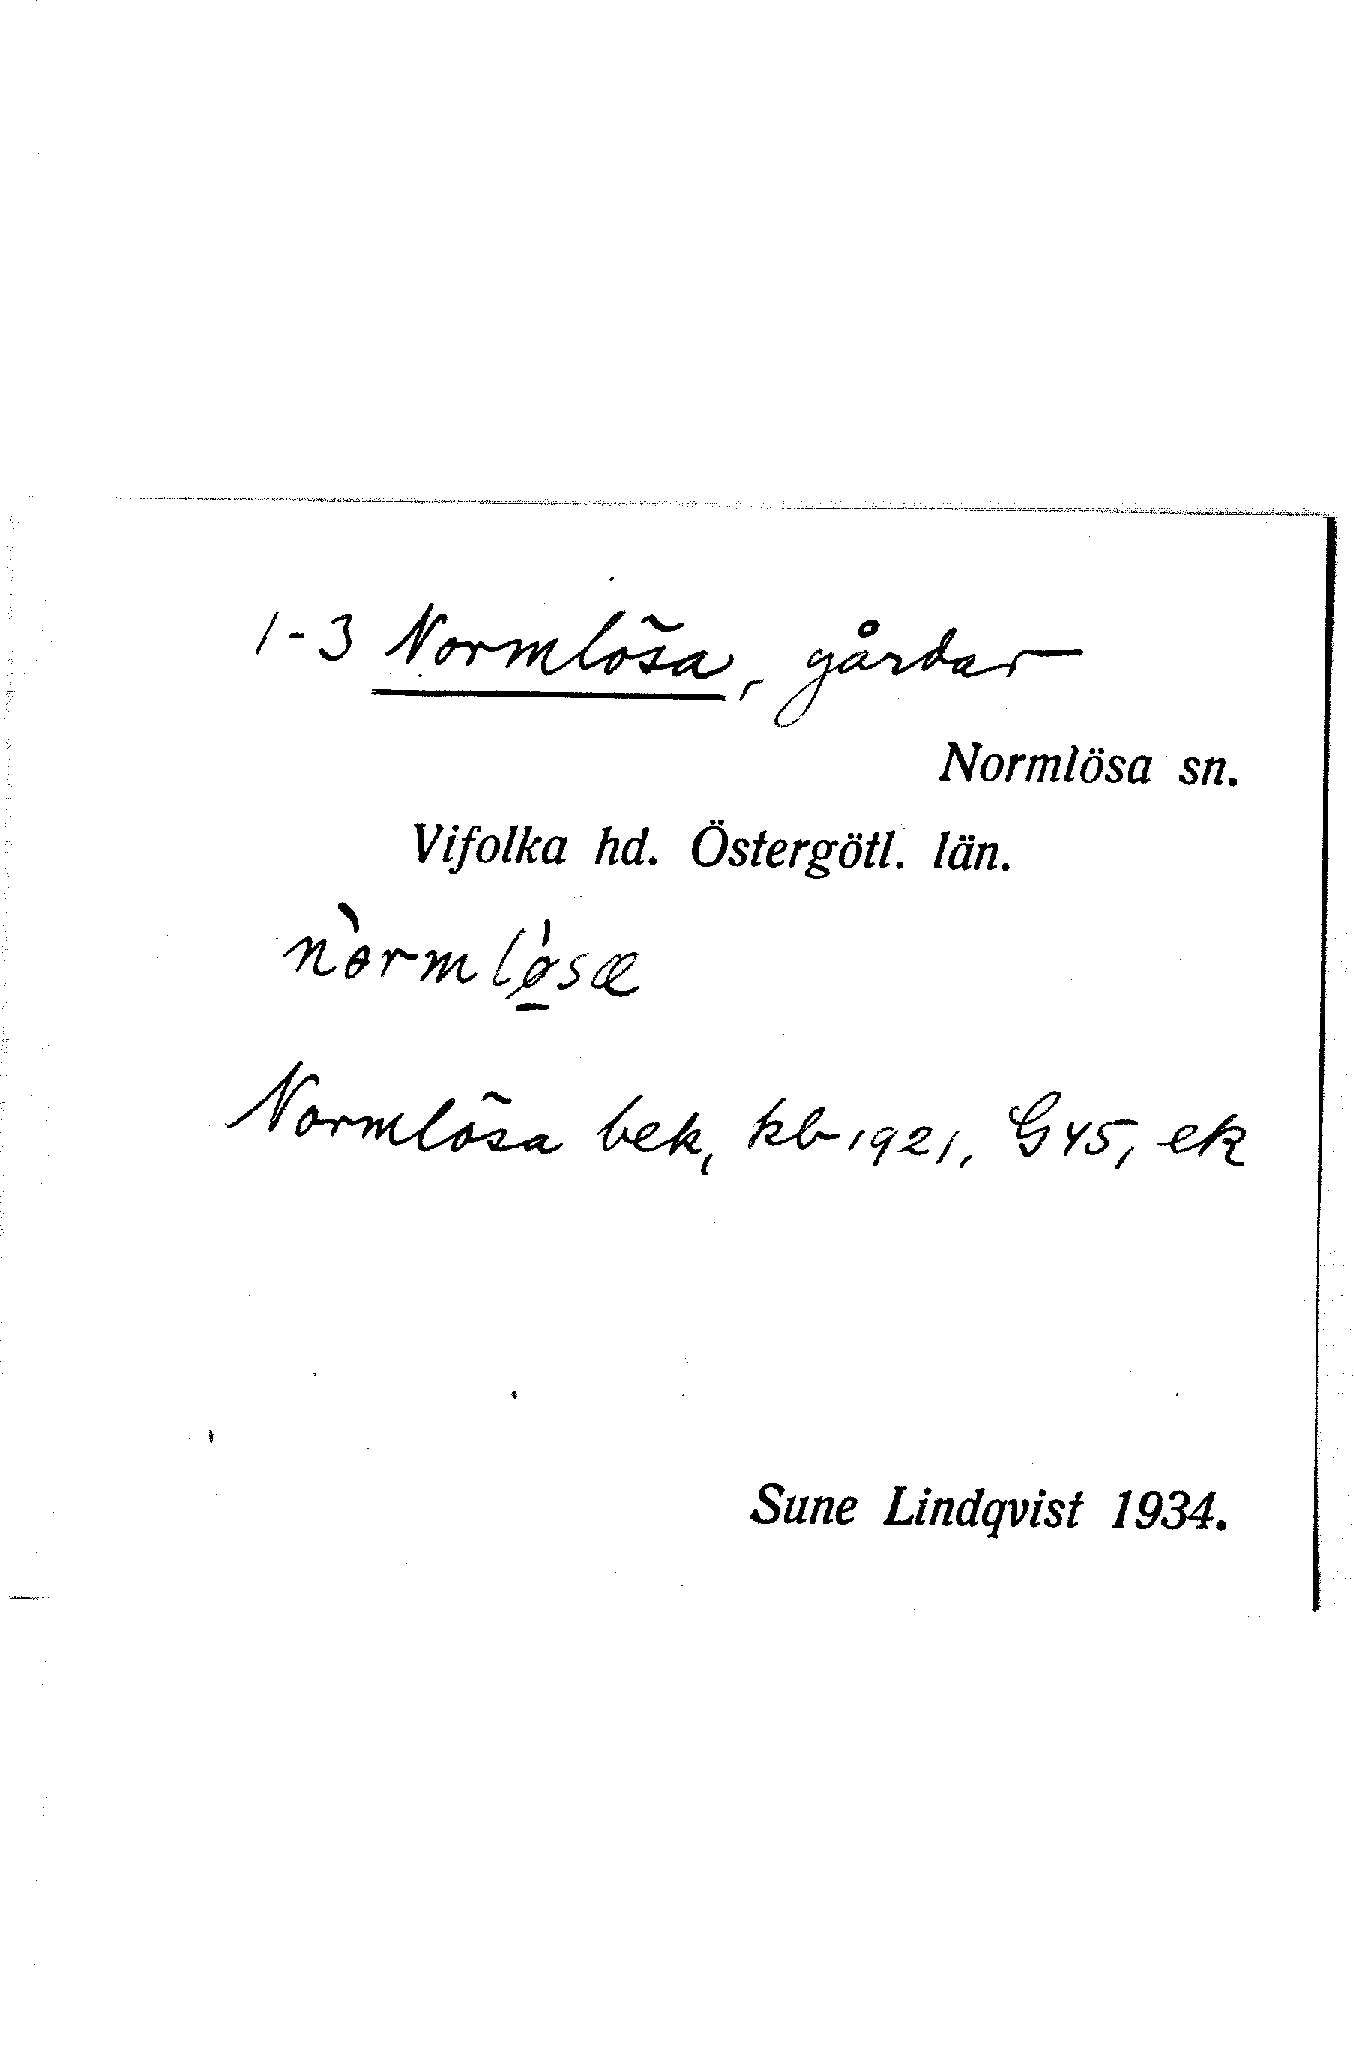 1-3 Normlösa, gårdar
Normlösa sn.
Vifolka hd. Östergötl. län.
nòrmlǿ̱sæ
Normlösa bek, kb 1921, G45, ek
Sune Lindqvist 1934.